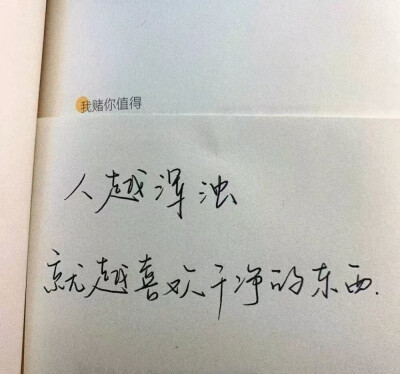 我赌你值得
人越浑浊
就越喜欢干净的东西.